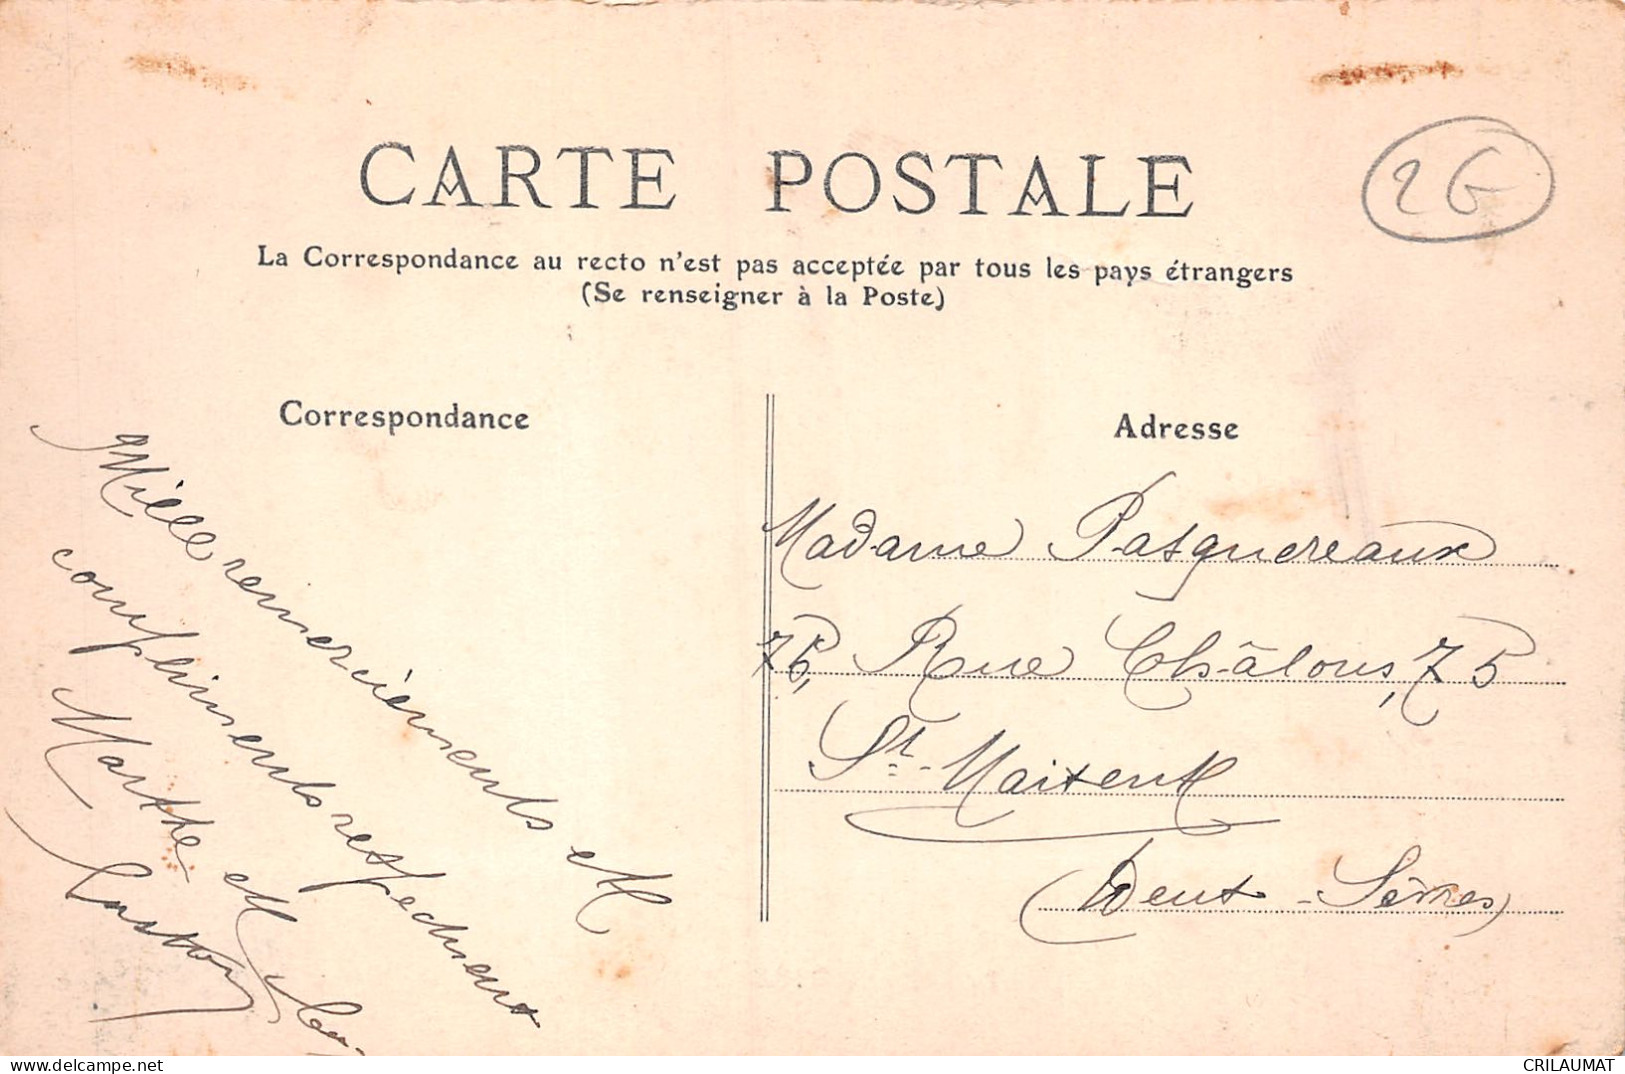 CARTE POSTALE
2G
La Correspondance au recto n'est pas acceptée par tous les pays étrangers
(Se renseigner à la Poste)
Correspondance
Mille remerciements et
compliments respectueux
Marthe et
Gaston
Adresse
Madame Pasquereaux
75, Rue Châlons, 75
St-Maixent
(Deux-Sèvres)
CRILAUMAT